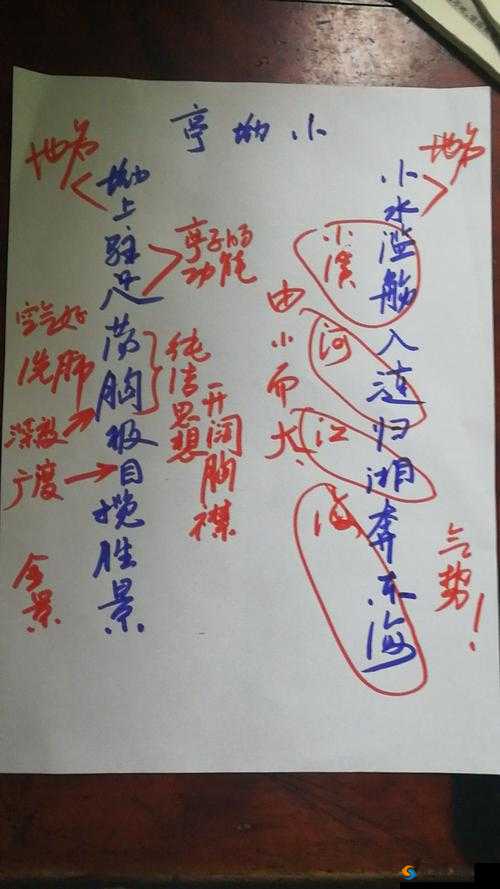 小坳亭
地名
小水滥觞入涟归湘奔东海
小溪
河
江
海
由小而大
气势！
地名
坳上驻足荡胸极目揽胜景
亭子的功能
空气好
洗肺
纯洁思想
开阔胸襟
深邃
广度
全景